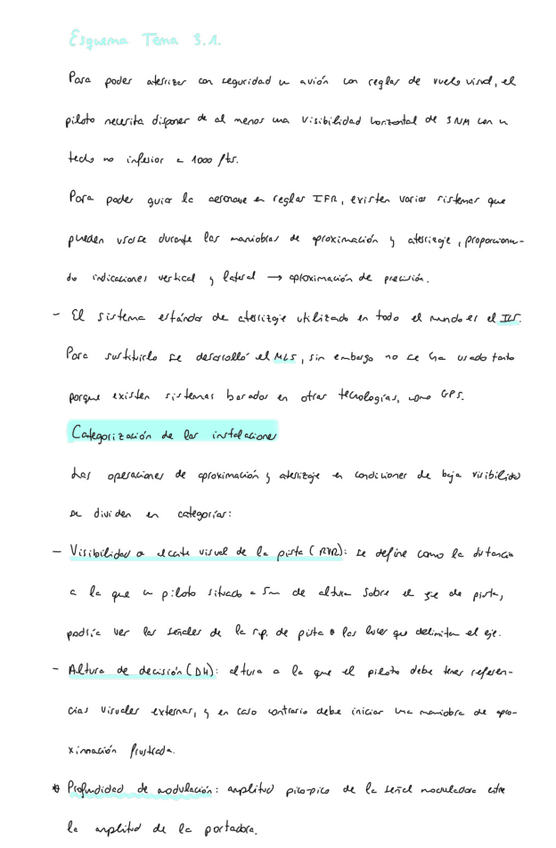 Esquema Tema 3.1.
Para poder aterrizar con seguridad un avión con reglas de vuelo visual, el
piloto necesita disponer de al menos una visibilidad horizontal de 3NM con un
techo no inferior a 1000 fts.
Para poder guiar la aeronave en reglas IFR, existen varios sistemas que
pueden usarse durante las maniobras de aproximación y aterrizaje, proporcionan-
do indicaciones vertical y lateral → aproximación de precisión.
- El sistema estándar de aterrizaje utilizado en todo el mundo es el ILS.
Para sustituirlo se desarrolló el MLS, sin embargo no se ha usado tanto
porque existen sistemas basados en otras tecnologías, como GPS.
Categorización de las instalaciones
Las operaciones de aproximación y aterrizaje en condiciones de baja visibilidad
se dividen en categorías:
- Visibilidad o alcance visual de la pista (RVR): se define como la distancia
a la que un piloto situado a 5m de altura sobre el eje de pista,
podría ver las señales de la s.p. de pista o las luces que delimitan el eje.
- Altura de decisión (DH): altura a la que el piloto debe tener referen-
cias visuales externas, y en caso contrario debe iniciar una maniobra de apro-
ximación frustrada.
* Profundidad de modulación: amplitud pico-pico de la señal moduladora entre
la amplitud de la portadora.